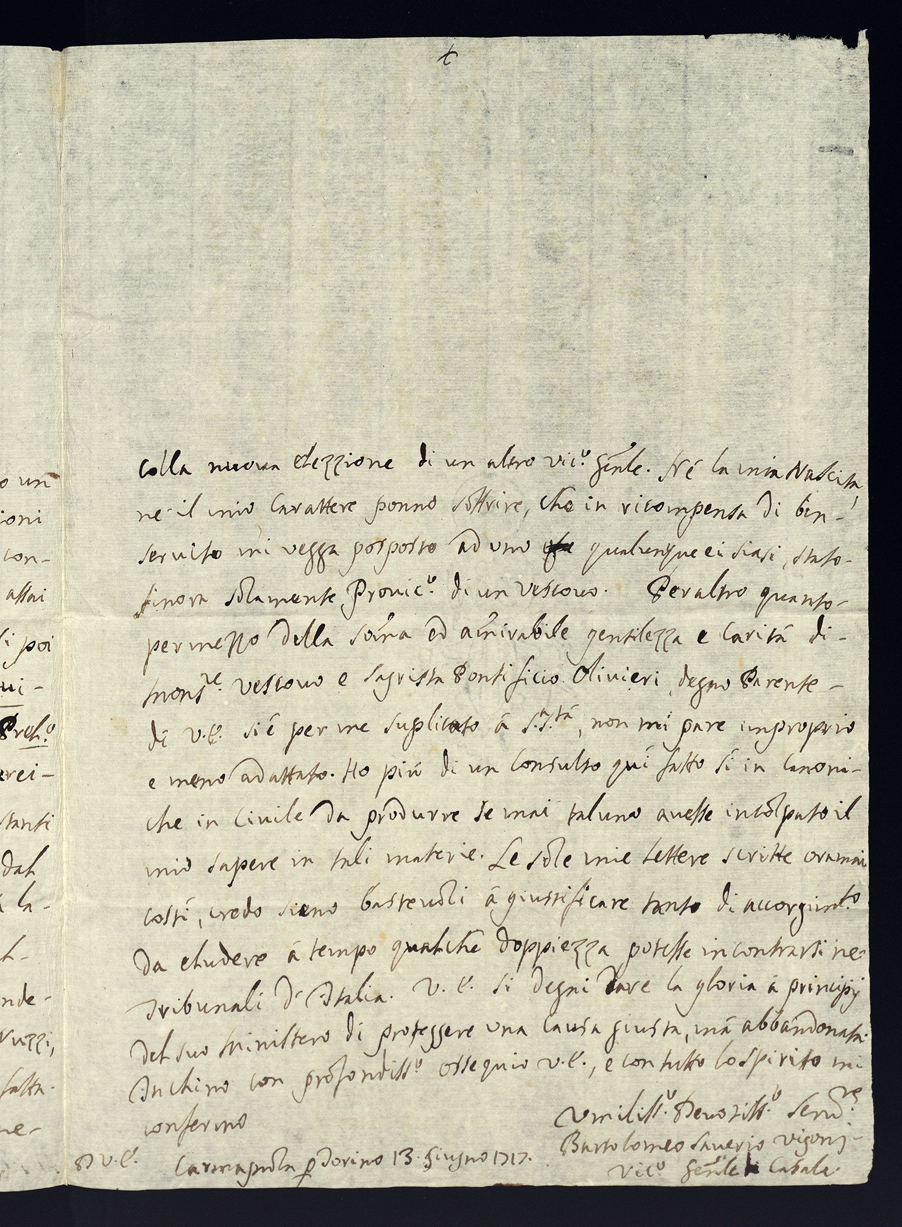 t
colla nuova elezzione di un altro vic.º gñle. Né la mia Nascita,
ne il mio Carattere ponno soffrire, che in ricompensa di ben-
servito mi vegga posposto ad uno qualunque ei siasi, stato-
finora solamente Provic.º di un Vescovo. Per altro quanto-
per mezzo della som̃a ed am̃irabile gentilezza e Carità di-
Mons.re Vescovo e Sagrista Pontificio Olivieri, degno Parente-
di V.E. si è per me suplicato á S.S.tá, non mi pare improprio
e meno adattato. Ho più di un Consulto quí fatto sí in Canoni-
che in Civile da produrre se mai taluno avesse incolpato il
mio sapere in tali materie. Le sole mie lettere scritte oramai
costí, credo sieno bastevoli á giustificare tanto di accorgim.to
da eludere á tempo qualche doppiezza potesse incontrarsi ne
Tribunali d'Italia. V.E. si degni dare la gloria á principij
del suo ministero di proteggere una Causa giusta, má abbandonata.
Inchino con profondiss.º ossequio V.E., e con tutto lo spirito mi
confermo
D V.E. Carmagnola p Torino 13 Giugno 1717.
Umiliss.º Devotiss.º Serv.re
Bartolomeo Saverio Vigorij-
Vic.º Gñle Cabala
o un
ioni
con-
assai
si poi
ui-
Pret.º
erei-
stanti
dal
la-
nde-
vuzzi,
fatta
ne-